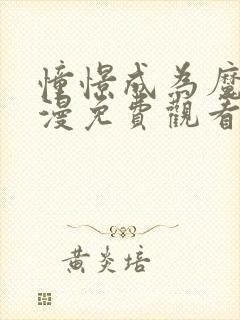 憧憬成為魔
漫免費觀看
黃炎培